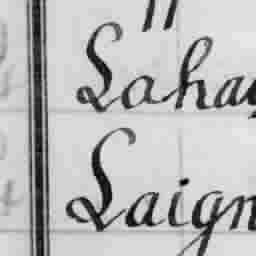 "
Lahay
Laign